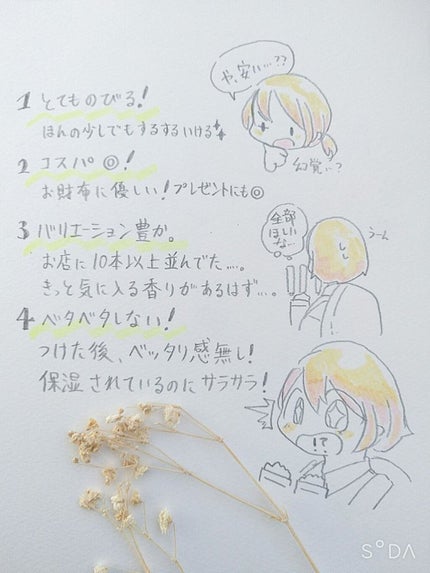 や、安い…??
1 とてものびる!
ほんの少しでもするするいける
幻覚…?
2 コスパ◎!
お財布に優しい!プレゼントにも◎
3 バリエーション豊か。
全部
ほしい
な…
うーん
お店に10本以上並んでた…。
きっと気に入る香りがあるはず…。
4 ベタベタしない!
つけた後、ベッタリ感無し!
保湿されているのにサラサラ!
!?
SODA